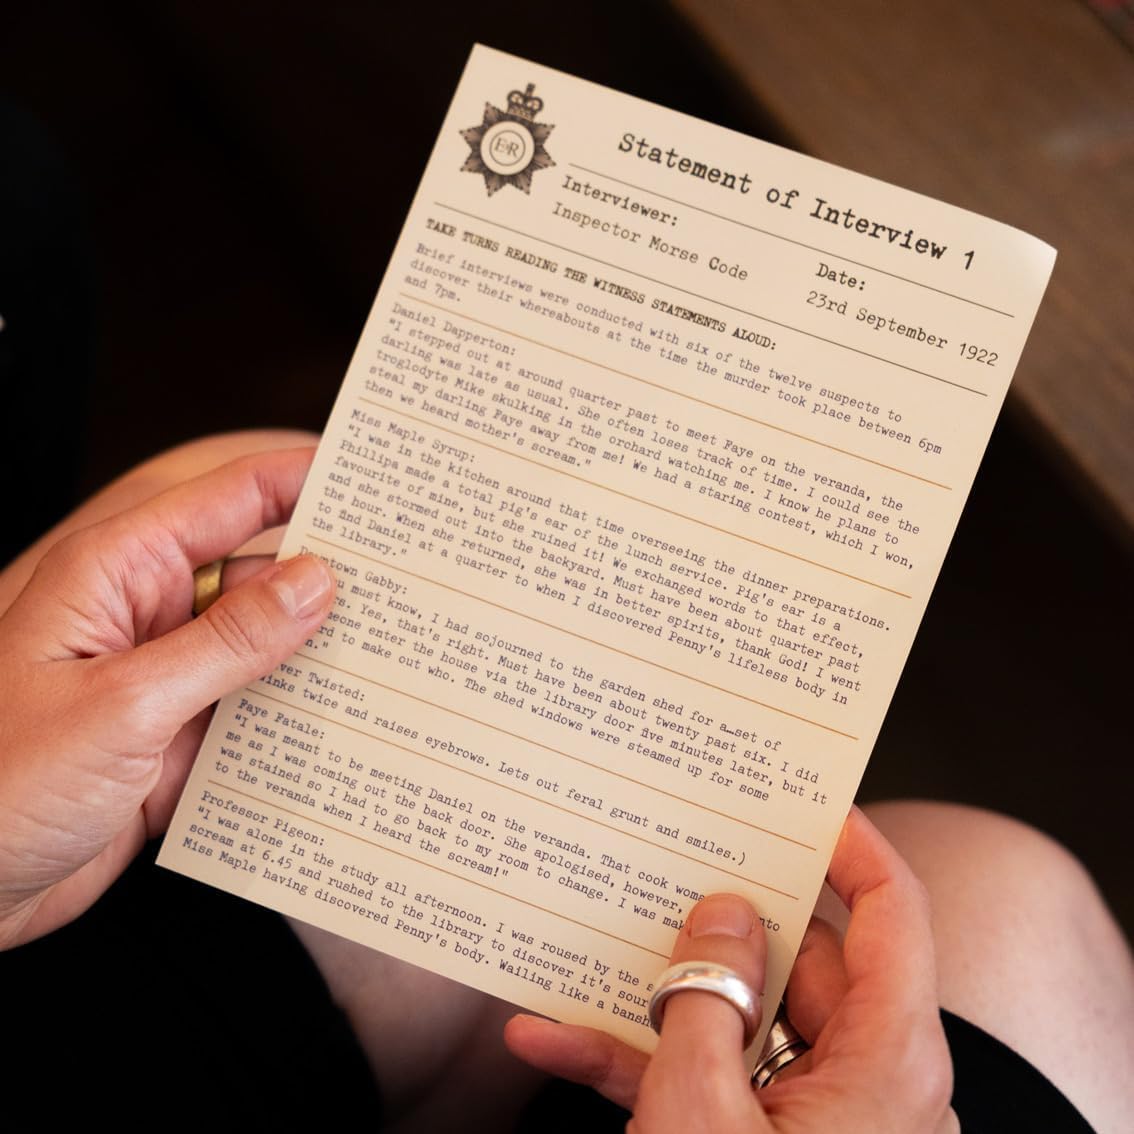 E R
Statement of Interview 1
Interviewer:
Inspector Morse Code
Date:
23rd September 1922
TAKE TURNS READING THE WITNESS STATEMENTS ALOUD:
Brief interviews were conducted with six of the twelve suspects to
discover their whereabouts at the time the murder took place between 6pm
and 7pm.
Daniel Dapperton:
"I stepped out at around quarter past to meet Faye on the veranda, the
darling was late as usual. She often loses track of time. I could see the
troglodyte Mike skulking in the orchard watching me. I know he plans to
steal my darling Faye away from me! We had a staring contest, which I won,
then we heard mother's scream."
Miss Maple Syrup:
"I was in the kitchen around that time overseeing the dinner preparations.
Phillipa made a total pig's ear of the lunch service. Pig's ear is a
favourite of mine, but she ruined it! We exchanged words to that effect,
and she stormed out into the backyard. Must have been about quarter past
the hour. When she returned, she was in better spirits, thank God! I went
to find Daniel at a quarter to when I discovered Penny's lifeless body in
the library."
town Gabby:
must know, I had sojourned to the garden shed for a...set of
Yes, that's right. Must have been about twenty past six. I did
enter the house via the library door five minutes later, but it
to make out who. The shed windows were steamed up for some
Twisted:
twice and raises eyebrows. Lets out feral grunt and smiles.)
Faye Fatale:
"I was meant to be meeting Daniel on the veranda. That cook
me as I was coming out the back door. She apologised, however,
was stained so I had to go back to my room to change. I was
to the veranda when I heard the scream!"
Professor Pigeon:
"I was alone in the study all afternoon. I was roused by the
scream at 6.45 and rushed to the library to discover it's
Miss Maple having discovered Penny's body. Wailing like a